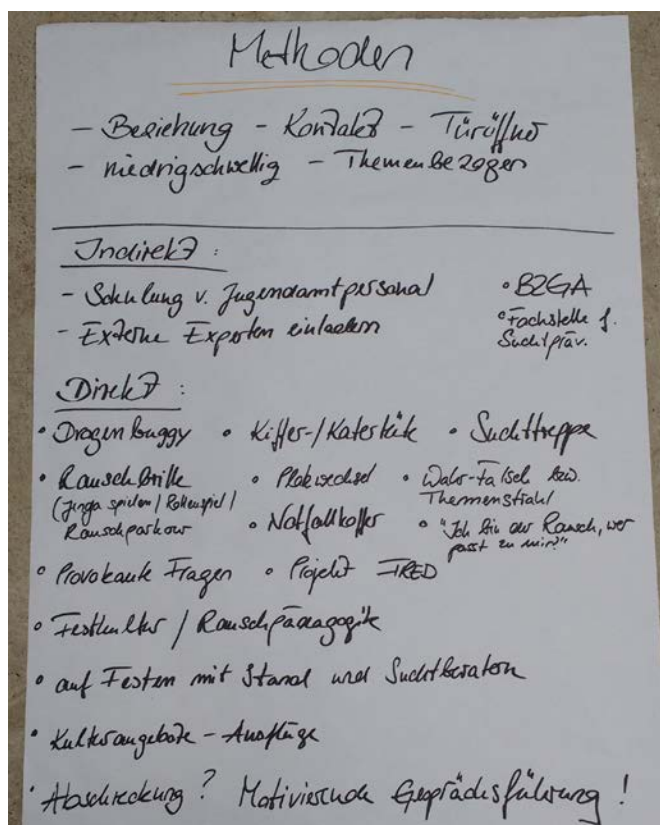 Methoden
- Beziehung - Kontakt - Türöffner
- niedrigschwellig - Themenbezogen
Indirekt :
- Schulung v. Jugendamtpersonal
- Externe Experten einladen
• BZGA
• Fachstelle f.
Suchtpräv.
Direkt :
• Drogenbuggy • Kiffer-/Katerkiste • Suchttreppe
• Rauschbrille • Platzwechsel • Wahr-Falsch bzw.
Themenstrahl
(Jenga spielen / Rollenspiel /
Rauschparkour
• Notfallkoffer • "Ich bin der Rausch, wer
passt zu mir?"
• Provokante Fragen • Projekt FRED
• Festkultur / Rauschpädagogik
• auf Festen mit Stand und Suchtberatern
• Kulturangebote - Ausflüge
• Abschreckung? Motivierende Gesprächsführung!